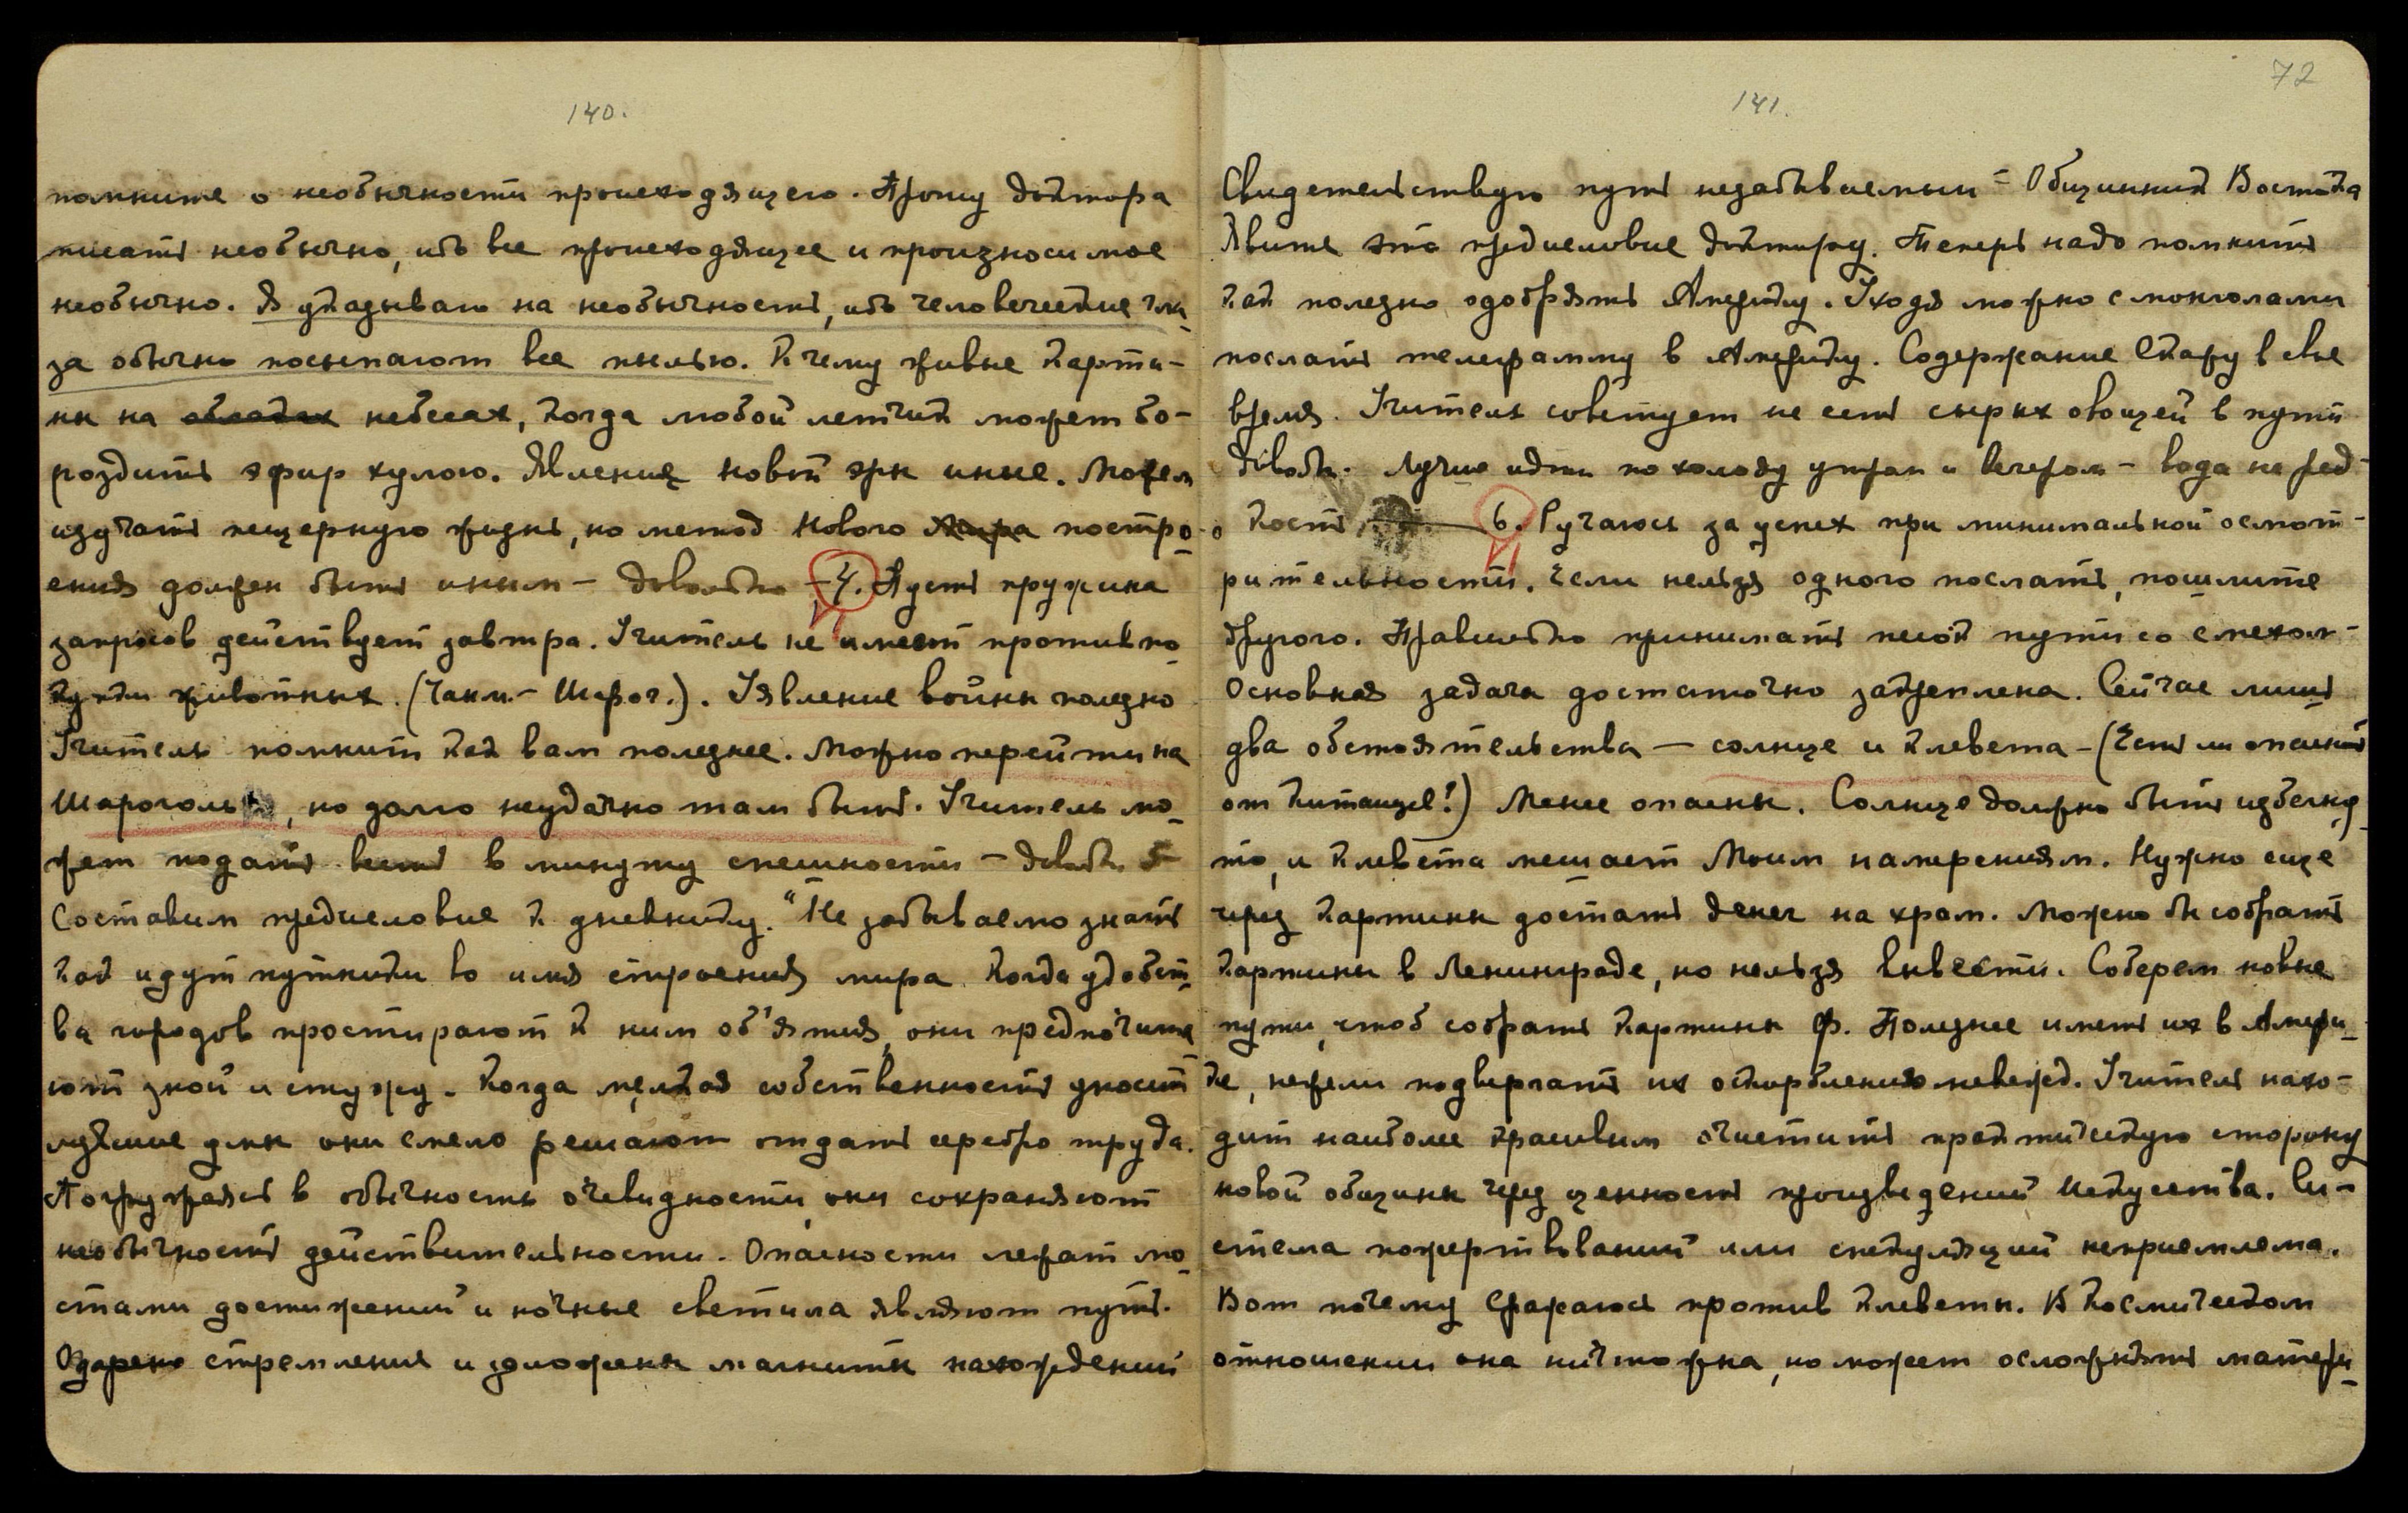 140.
помните о необычности происходящего. Прошу доктора
писать необычно, ибо все происходящее и произносимое
необычно. Я указываю на необычность, ибо человеческие гла-
за обычно посыпают все пылью. К чему живые карти-
ны на облаках небесах, когда любой летчик может бо-
роздить эфир хулою. Явление новой эры иные. Можем
изучать пещерную жизнь, но метод Нового Мира постро-
ения должен быть иным – довольно – 4. Пусть пружина
запросов действует завтра. Учитель не имеет против по-
купки животных. (Чакм. – Шарог.). Уявление войны полезно
Учитель помнит как вам полезнее. Можно перейти на
Шароголь, но долго неудачно там быть. Учитель мо-
жет подать весть в минуту спешности – довольно 5
Составим предисловие к дневнику. "Не забываемо знать
как идут путники во имя строения мира. Когда удобст-
ва городов простирают к ним об'ятия, они предпочита
ют зной и стужу. Когда мелкая собственность уносит
лучшие дни они смело решают отдать серебро труда.
Погружаясь в обычность очевидности, они сохраняют
необычность действительности. Опасности лежат мо-
стами достижений и ночные светила являют путь.
Озарено стремление и заложены магниты нахождений
72
141.
Свидетельствую путь незабываемый – Общинник Востока
Явите это предисловие доктору. Теперь надо помнить
как полезно одобрять Америку. Уходя можно с монголами
послать телеграмму в Америку. Содержание Скажу в свое
время. Учитель советует не есть сырых овощей в пути
довольно. Лучше идти по холоду утром и вечером – вода не ред-
кость 6. Ручаюсь за успех при минимальной осмот-
рительности. Если нельзя одного послать, пошлите
другого. Правильно принимать песок пути со смехом –
Основная задача достаточно закреплена. Сейчас лишь
два обстоятельства – солнце и клевета – (Есть ли опасность
от китайцев?) Менее опасны. Солнце должно быть избегну-
то, и клевета мешает Моим намерениям. Нужно еще
через картины достать денег на храм. Можно бы собрать
картины в Ленинграде, но нельзя вывезти. Соберем новые
пути, чтоб собрать картины Ф. Полезнее иметь их в Амери-
ке, нежели подвергать их оскорблению невежд. Учитель нахо-
дит наиболее красивым очистить практическую сторону
новой общины через ценность произведений искусства. Си-
стема пожертвований или спекуляций неприемлема.
Вот почему Сражаюсь против клеветы. В космическом
отношении она ничтожна, но может осложнять матери-